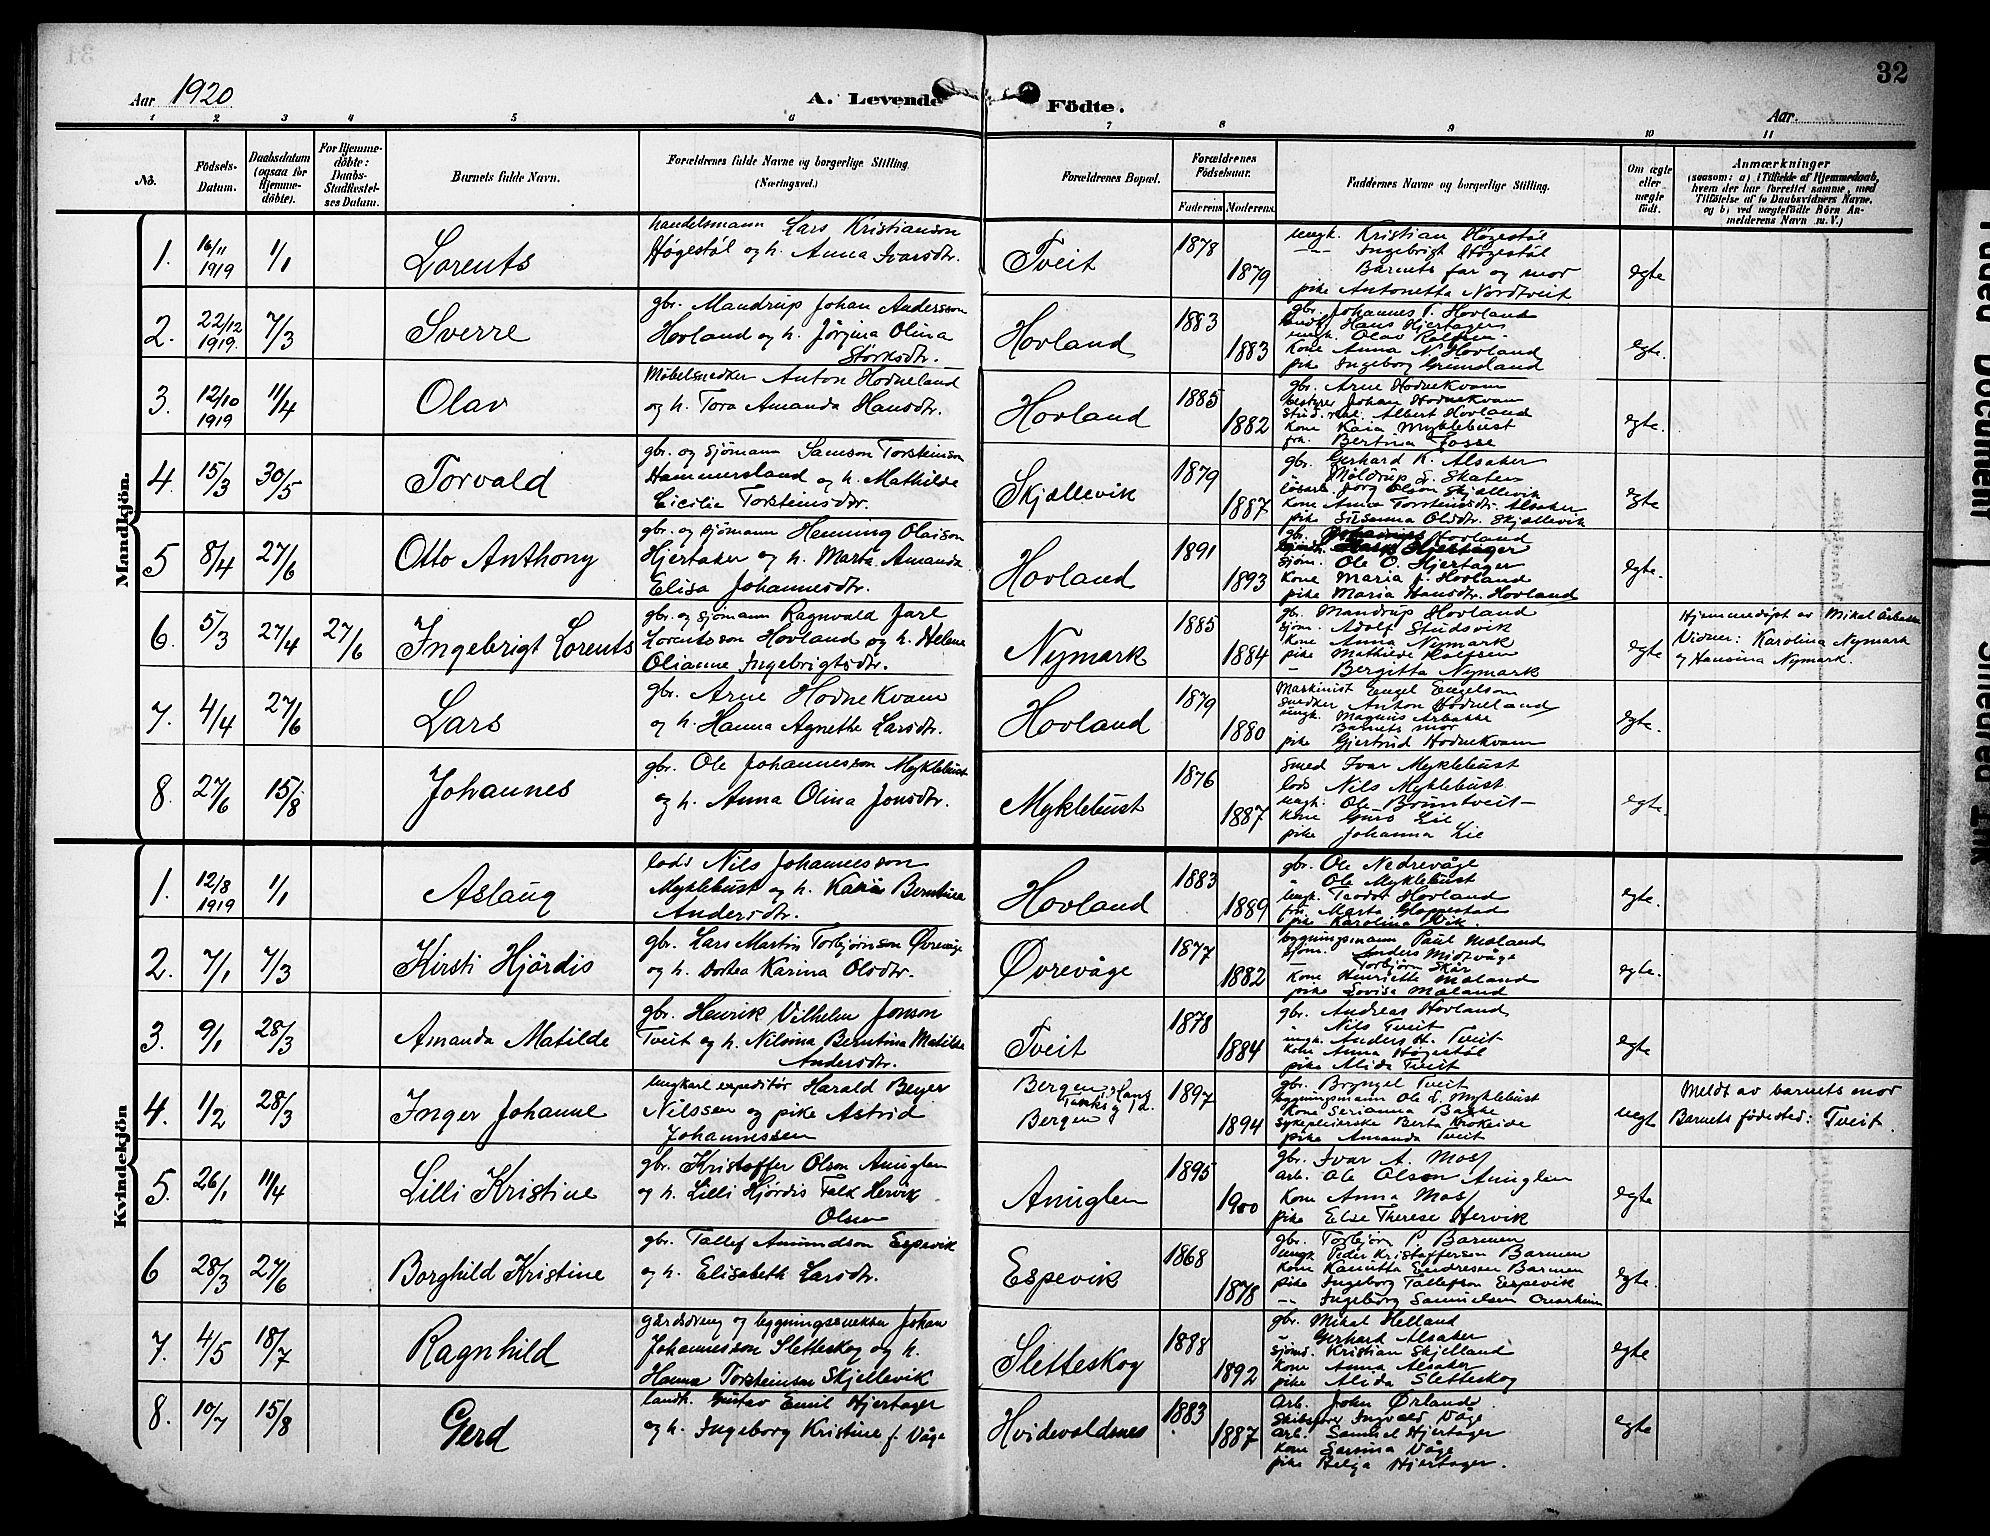 32
Aar 1920
A. Levende Födte.
Aar
1 2 3 4 5 6 7 8 9 10 11
No.
Födsels-Datum.
Daabsdatum (ogsaa for Hjemmedöbte).
For Hjemmedöbte: Daabs-Stadfæstelses Datum.
Barnets fulde Navn.
Forældrenes fulde Navne og borgerlige Stilling. (Næringsvei.)
Forældrenes Bopæl.
Forældrenes Födselsaar.
Faderens Moderens
Faddernes Navne og borgerlige Stilling.
Om ægte eller uægte födt.
Anmærkninger
(saasom: a) i Tilfælde af Hjemmedaab, hvem der har forrettet samme, med Tilföielse af to Daabsvidners Navne, og b) ved uægtefödte Börn Anmelderens Navn m. V.)
Mandkjön.
1. 16/11 1919 1/1 Lorents
Handelsmann Lars Kristianson
Høgestøl og h. Anna Ivarsdtr.
Tveit 1878 1879
ungk. Kristian Høgestøl
Ingebrigt Høgestøl
Barnets far og mor
pike Antonetta Nordtveit
egte
2. 22/12 1919. 7/3 Sverre
gbr. Mandrup Johan Andersson
Hovland og h. Jörgina Olina
Størksdtr.
Hovland 1883 1883
gbr. Johannes T. Hovland
Hans Hjertager
ungk. Olav Rolfsen
Kone Anna N. Hovland
pike Ingeborg Grimland
egte.
3. 12/10 1919 11/4 Olav
Møbelsnedker Anton Hodneland
og h. Tora Amanda Hansdtr.
Hovland 1885 1882
gbr. Arne Hodnekvam
bestyrer Johan Hodnekvam
Albert Hovland
Kone Kaia Myklebust
frk. Bertina Fosse
egte.
4. 15/3 30/5 Torvald
gbr. og sjömann Samson Torsteinson
Hammersland og h. Mathilde
Cicilie Torsteinsdtr.
Skjællevik 1879 1887
gbr. Gerhard K. Alsaker
Møldrup S. Skaten
Olson Skjællevik
Kone Anna Torsteinsdtr. Alsaker
pike Susanna Olsdtr. Skjællevik
egte
5 8/4 27/6 Otto Anthony
gbr. og sjömann Henning Olaison
Hjertaker og h. Marta Amanda
Elisa Johannesdtr.
Hovland 1891 1893
gbr. Hovland
Hjertager
sjöm. Ole O. Hjertager
Kone Maria J. Hovland
pike Maria Hansdtr. Hovland
egte.
6. 5/3 27/4 27/6 Ingebrigt Lorents
gbr. og sjömann Ragnvald Jarl
Lorentsson Hovland og h. Helene
Olianne Ingebrigtsdtr.
Nymark 1885 1884
gbr. Mandrup Hovland
sjöm. Adolf Studsvik
Kone Anna Nymark
pike Mathilde Rolfsen
Bergitta Nymark
egte
Hjemmedöpt av Mikal Årbakka
Vidner: Karolina Nymark
og Hansina Nymark.
7. 4/4 27/6 Lars
gbr. Arne HodneKvam
og h. Hanna Agnethe Larsdtr.
Hovland 1879 1880
Maskinist Engel Engelson
Snedker Anton Hodneland
ungk. Magnus Arbakke
Barnets mor
pike Gjertrud Hodnekvam
egte.
8. 27/6 15/8 Johannes
gbr. Ole Johannesson Myklebust
og h. Anna Olina Jonsdtr.
Myklebust 1876 1887
Smed Ivar Myklebust
lods Nils Myklebust
ungk. Ole Bruntveit
Kone Guro Lie
pike Johanna Lie
egte.
Kvindekjön
1. 12/8 1919 1/1 Aslaug
lods Nils Johannesson
Myklebust og h. Kaia Berntine
Andersdtr.
Hovland 1883 1889
gbr. Ole Nedrevåge
" Ole Myklebust
ungk. Teodor Hovland
frk. Marta Gloppestad
pike Karolina Vik
egte.
2. 7/1 7/3 Kirsti Hjördis
gbr. Lars Martin Torbjörnson Øvrevåge
og h. Dortea Karina Olsdtr.
Øvrevåge 1877 1882
bygningsmann Paul Måland
sjöm. Anders Midtvåge
Torbjörn Skår
Kone Henriette Måland
pike Lovisa Måland
egte.
3. 9/1 28/3 Amanda Matilde
gbr. Henrik Vilhelm Jonson
Tveit og h. Nilsina Berntina Matilde
Andersdtr.
Tveit 1878 1884
gbr. Andreas Hovland
" Nils Tveit
ungk. Anders H. Tveit
Kone Anna Høgestøl
pike Alida Tveit
egte
4. 1/2 28/3 Inger Johanne
Ungkarl expeditör Harald Beyer
Nilssen og pike Astrid
Johannessen
Bergen
Bergen 1897 1894
gbr. Bryngel Tveit
bygningsmann Ole L. Myklebust
Kone Serianna Bakke
sykepleierske Berta Krokeide
pike Amanda Tveit
uegt
Meldt av barnets mor
Barnets födested: Tveit.
5. 26/1 11/4 Lilli Kristine
gbr. Kristoffer Olson Anuglen
og h. Lilli Hjördis Falk Hervik
Olsen
Anuglen 1895 1900
gbr. Ivar A. Mos
Arb. Ole Olson Anuglen
Kone Anna Mos
pike Else Therese Hervik
egte
6 28/3 27/6 Borghild Kristine
gbr. Tallef Amundson Espevik
og h. Elisabeth Larsdtr.
Espevik 1868 1878
gbr. Torbjörn P. Barmen
ungk Peder Kristoffersen Barmen
Kone Kanutta Endresen Barmen
pike Ingeborg Tallefson Espevik
Ingeborg Samuelsen
egte.
7. 4/5 18/7 Ragnhild
gårdsdreng og bygningssnekker Johan
Johannesson Sletteskog og h.
Hanna Torsteinson Skjellevik
Sletteskog 1888 1892
gbr. Mikal Helland
" Gerhard Alsaker
sjöm. Kristian Skjelland
Kone Anna Alsaker
pike Alida Sletteskog
egte
8. 10/7 15/8 Gerd
landh. Gustav Emil Hjertager
og h. Ingeborg Kristine f. Våge
Hvidevoldsnes 1883 1887
Arb. John Ørland
Skibsförer Ingvald Våge
arb. Samuel Hjertager
Kone Sarsina Våge
pike Helga Hjertager.
egte
Faded Document
Smeared Ink